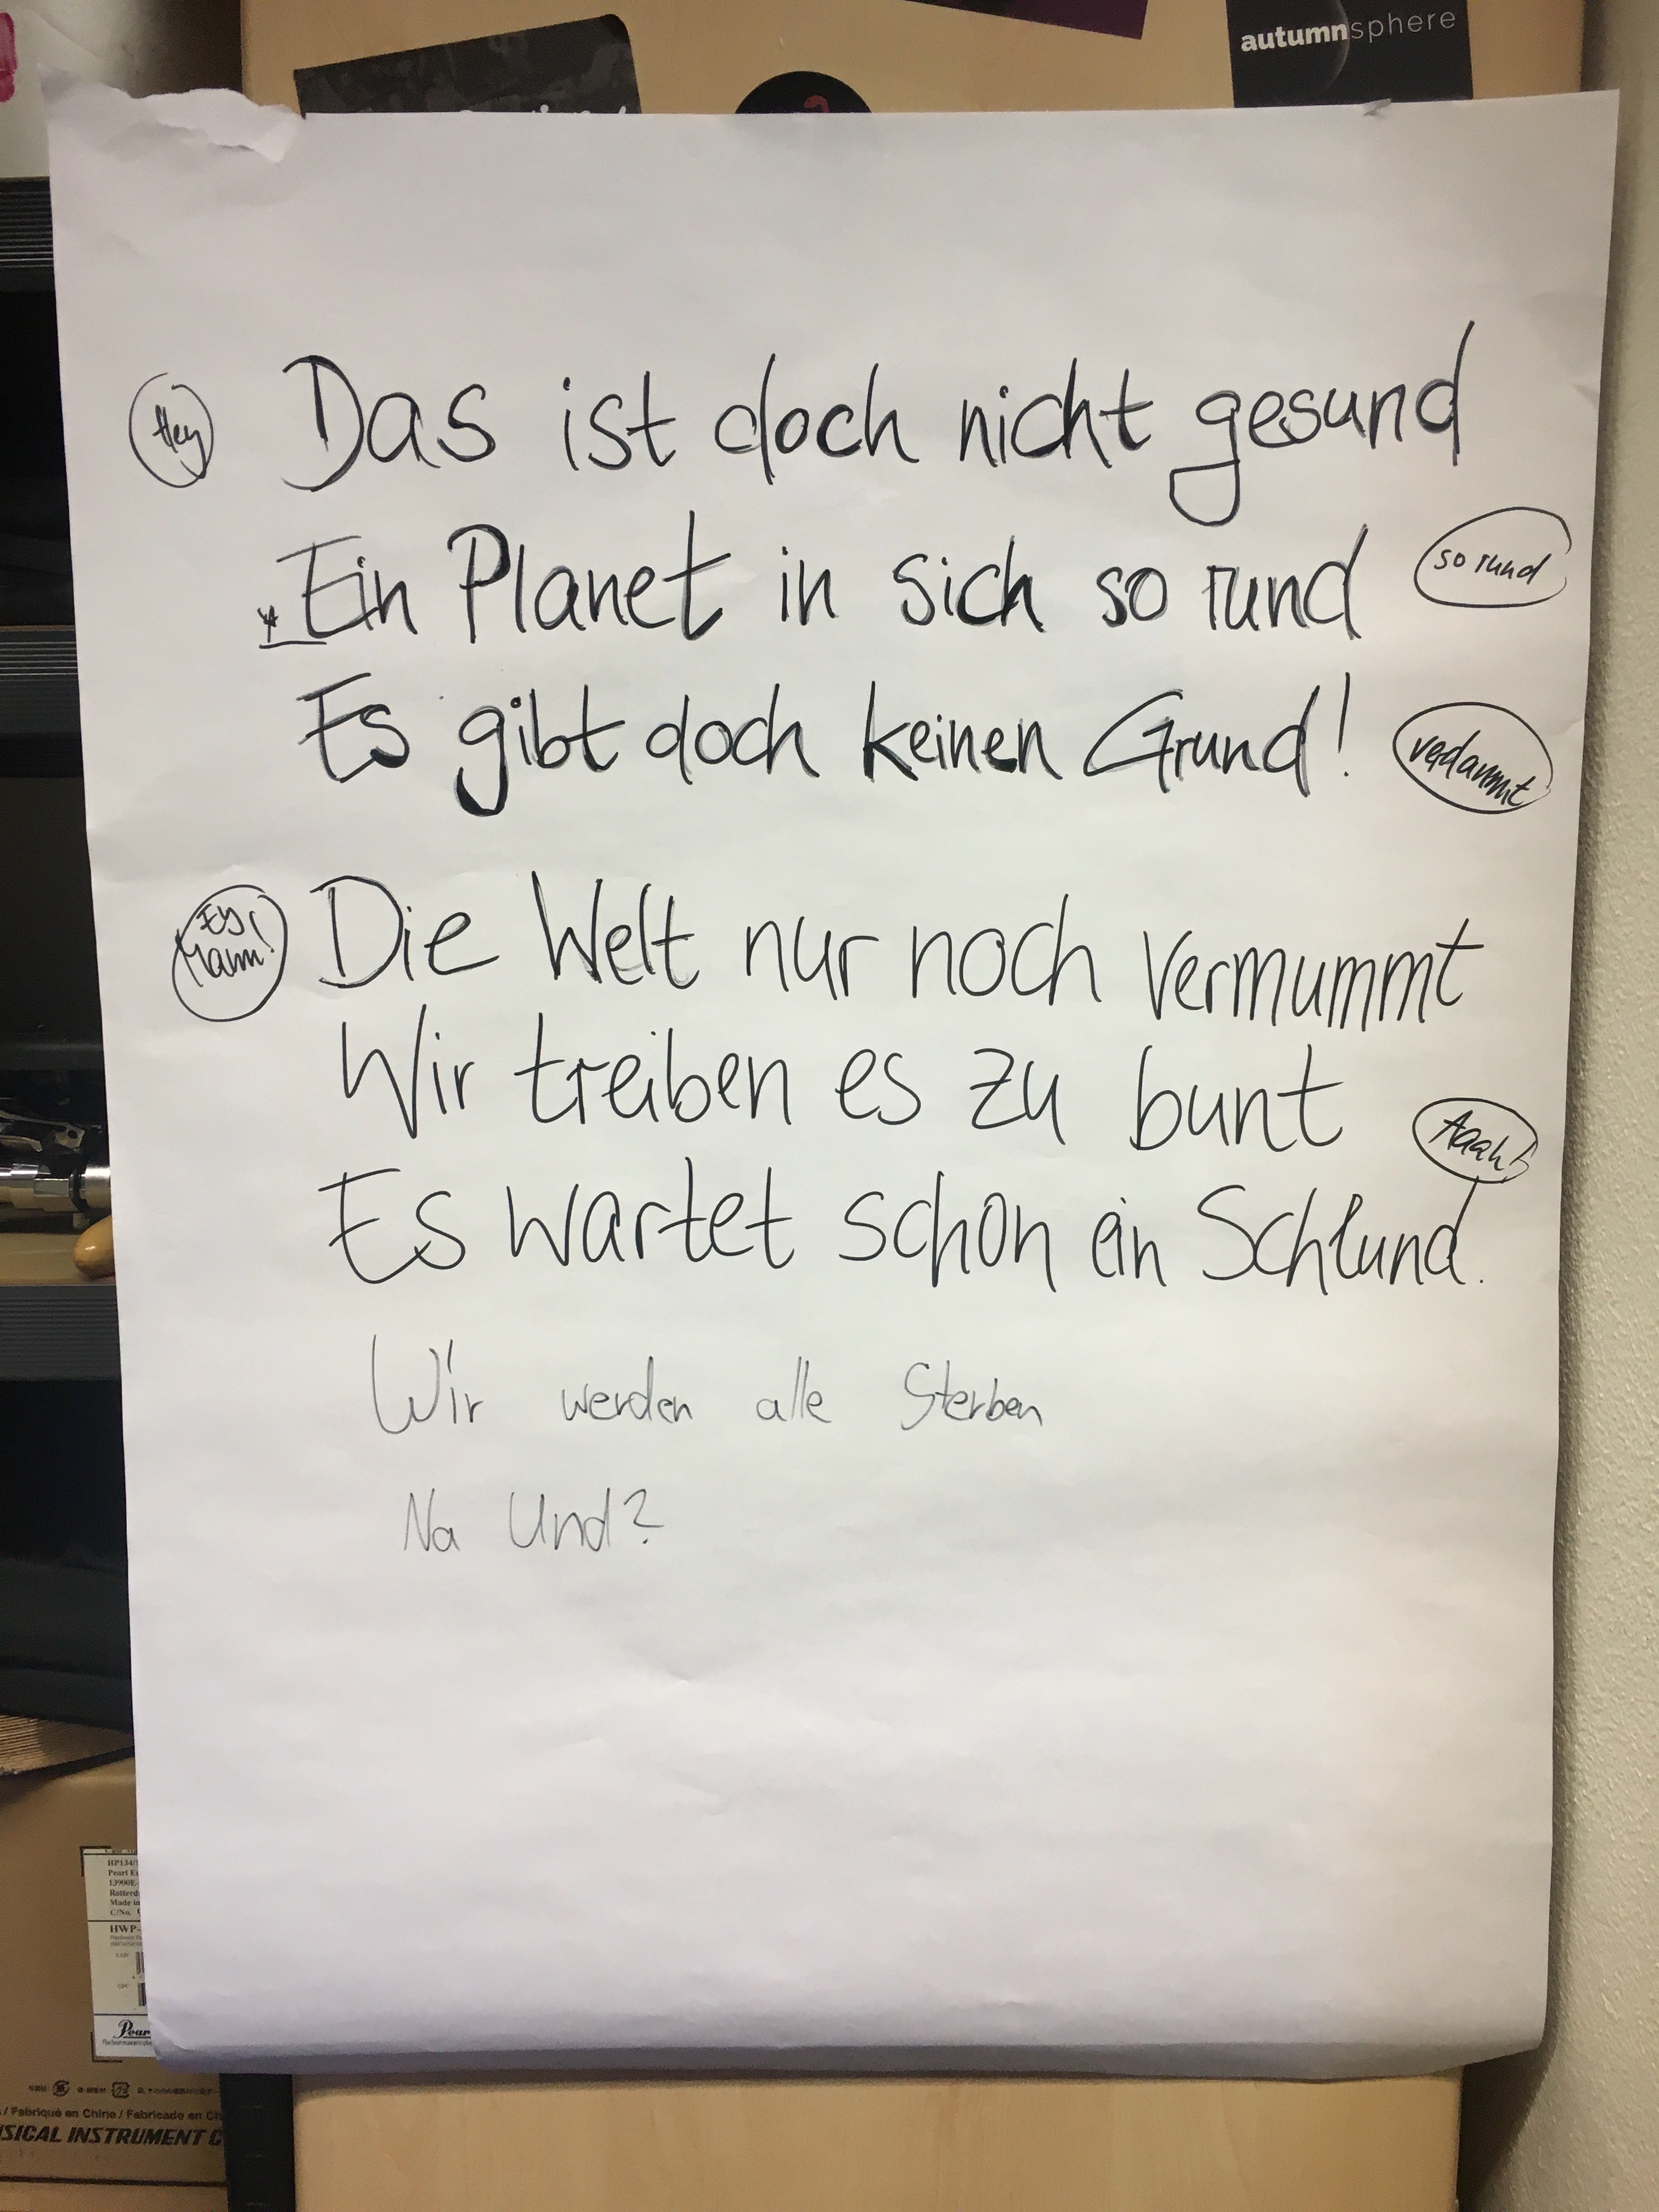 autumnsphere
Hey Das ist doch nicht gesund
Ein Planet in sich so rund so rund
Es gibt doch keinen Grund! verdammt
Ey Mann! Die Welt nur noch vermummt
Wir treiben es zu bunt
Aaah!
Es wartet schon ein Schlund.
Wir werden alle Sterben
Na Und?
HP134/
Pearl E
13900E-
Rotterd
Made in
C/No.
HWP-
Pear
/ Fabriqué en Chine / Fabricado en Ch
SICAL INSTRUMENT C